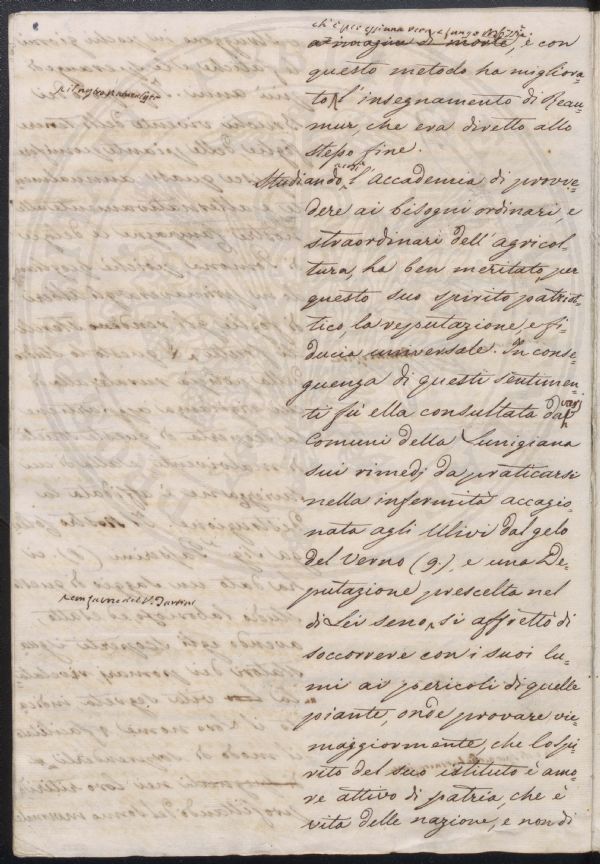 ch'è per essi una vera
a' immagine di morte, e con
questo metodo ha migliora-
to l'insegnamento di Reau-
mur, che era diretto allo
stesso fine.
Studiando l'Accademia di provve-
dere ai bisogni ordinari e
straordinari dell'agricol-
tura, ha ben meritato, per
questo suo spirito patriot-
tico, la reputazione, e fi-
ducia universale. In conse-
guenza di questi sentimen-
ti fù ella consultata da varj
Comuni della Lunigiana
sui rimedj da praticarsi
nella infermità accagio-
nata agli Ulivi dal gelo
del Verno (9.), e una De-
putazione prescelta nel
di Lei seno, si affrettò di
soccorrere con i suoi lu-
mi ai pericoli di quelle
piante, onde provare vie-
maggiormente, che lo spi-
rito del suo istituto è amo-
re attivo di patria, che è
vita delle nazione, e non di